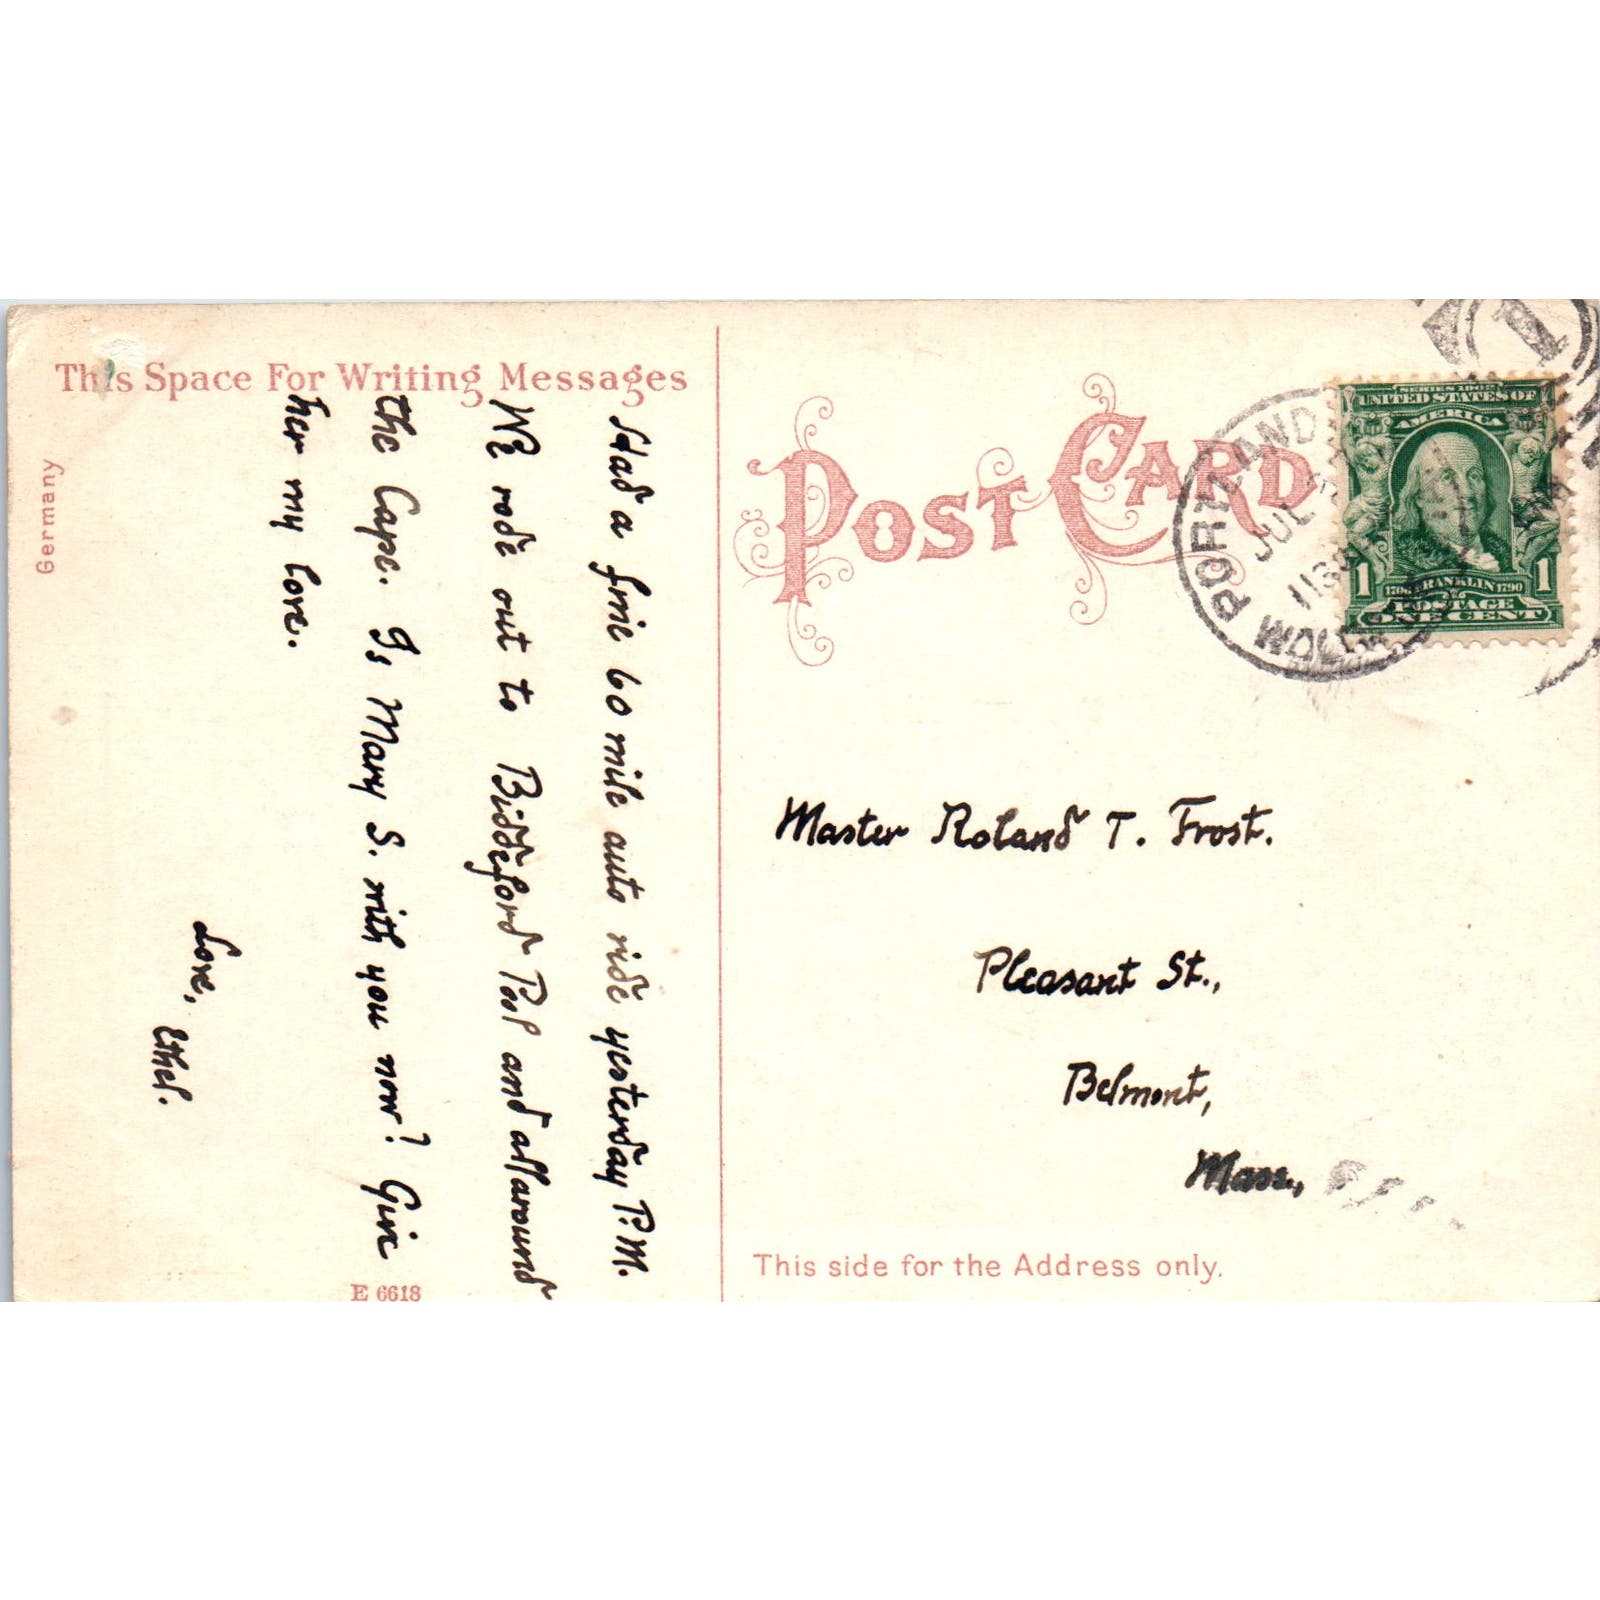 This Space For Writing Messages
Had a fine 60 mile auto ride yesterday P.M.
We rode out to Biddeford Pool and all around
the Cape. Is Mary S. with you now? Give
her my love.
Love,
Ethel.
Germany
E 6618
POST CARD
PORTLAND
JUL
1130
SERIES 1902
UNITED STATES OF
AMERICA
1706 FRANKLIN 1790
1 1
POSTAGE
ONE CENT
1
Master Roland T. Frost.
Pleasant St.,
Belmont,
Mass.,
This side for the Address only.